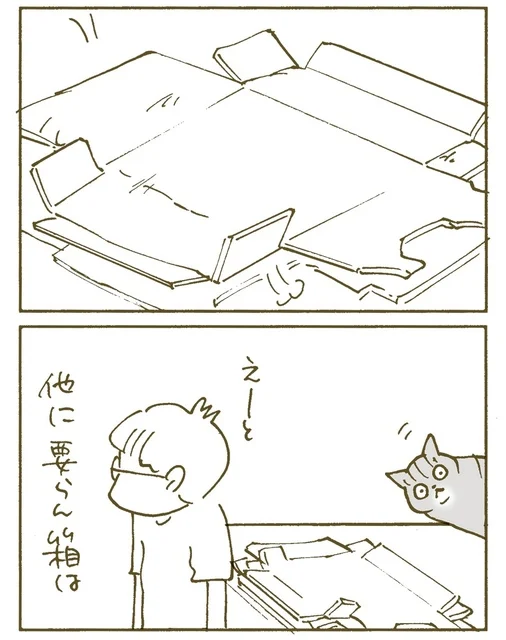 えーと
他に要らん箱は